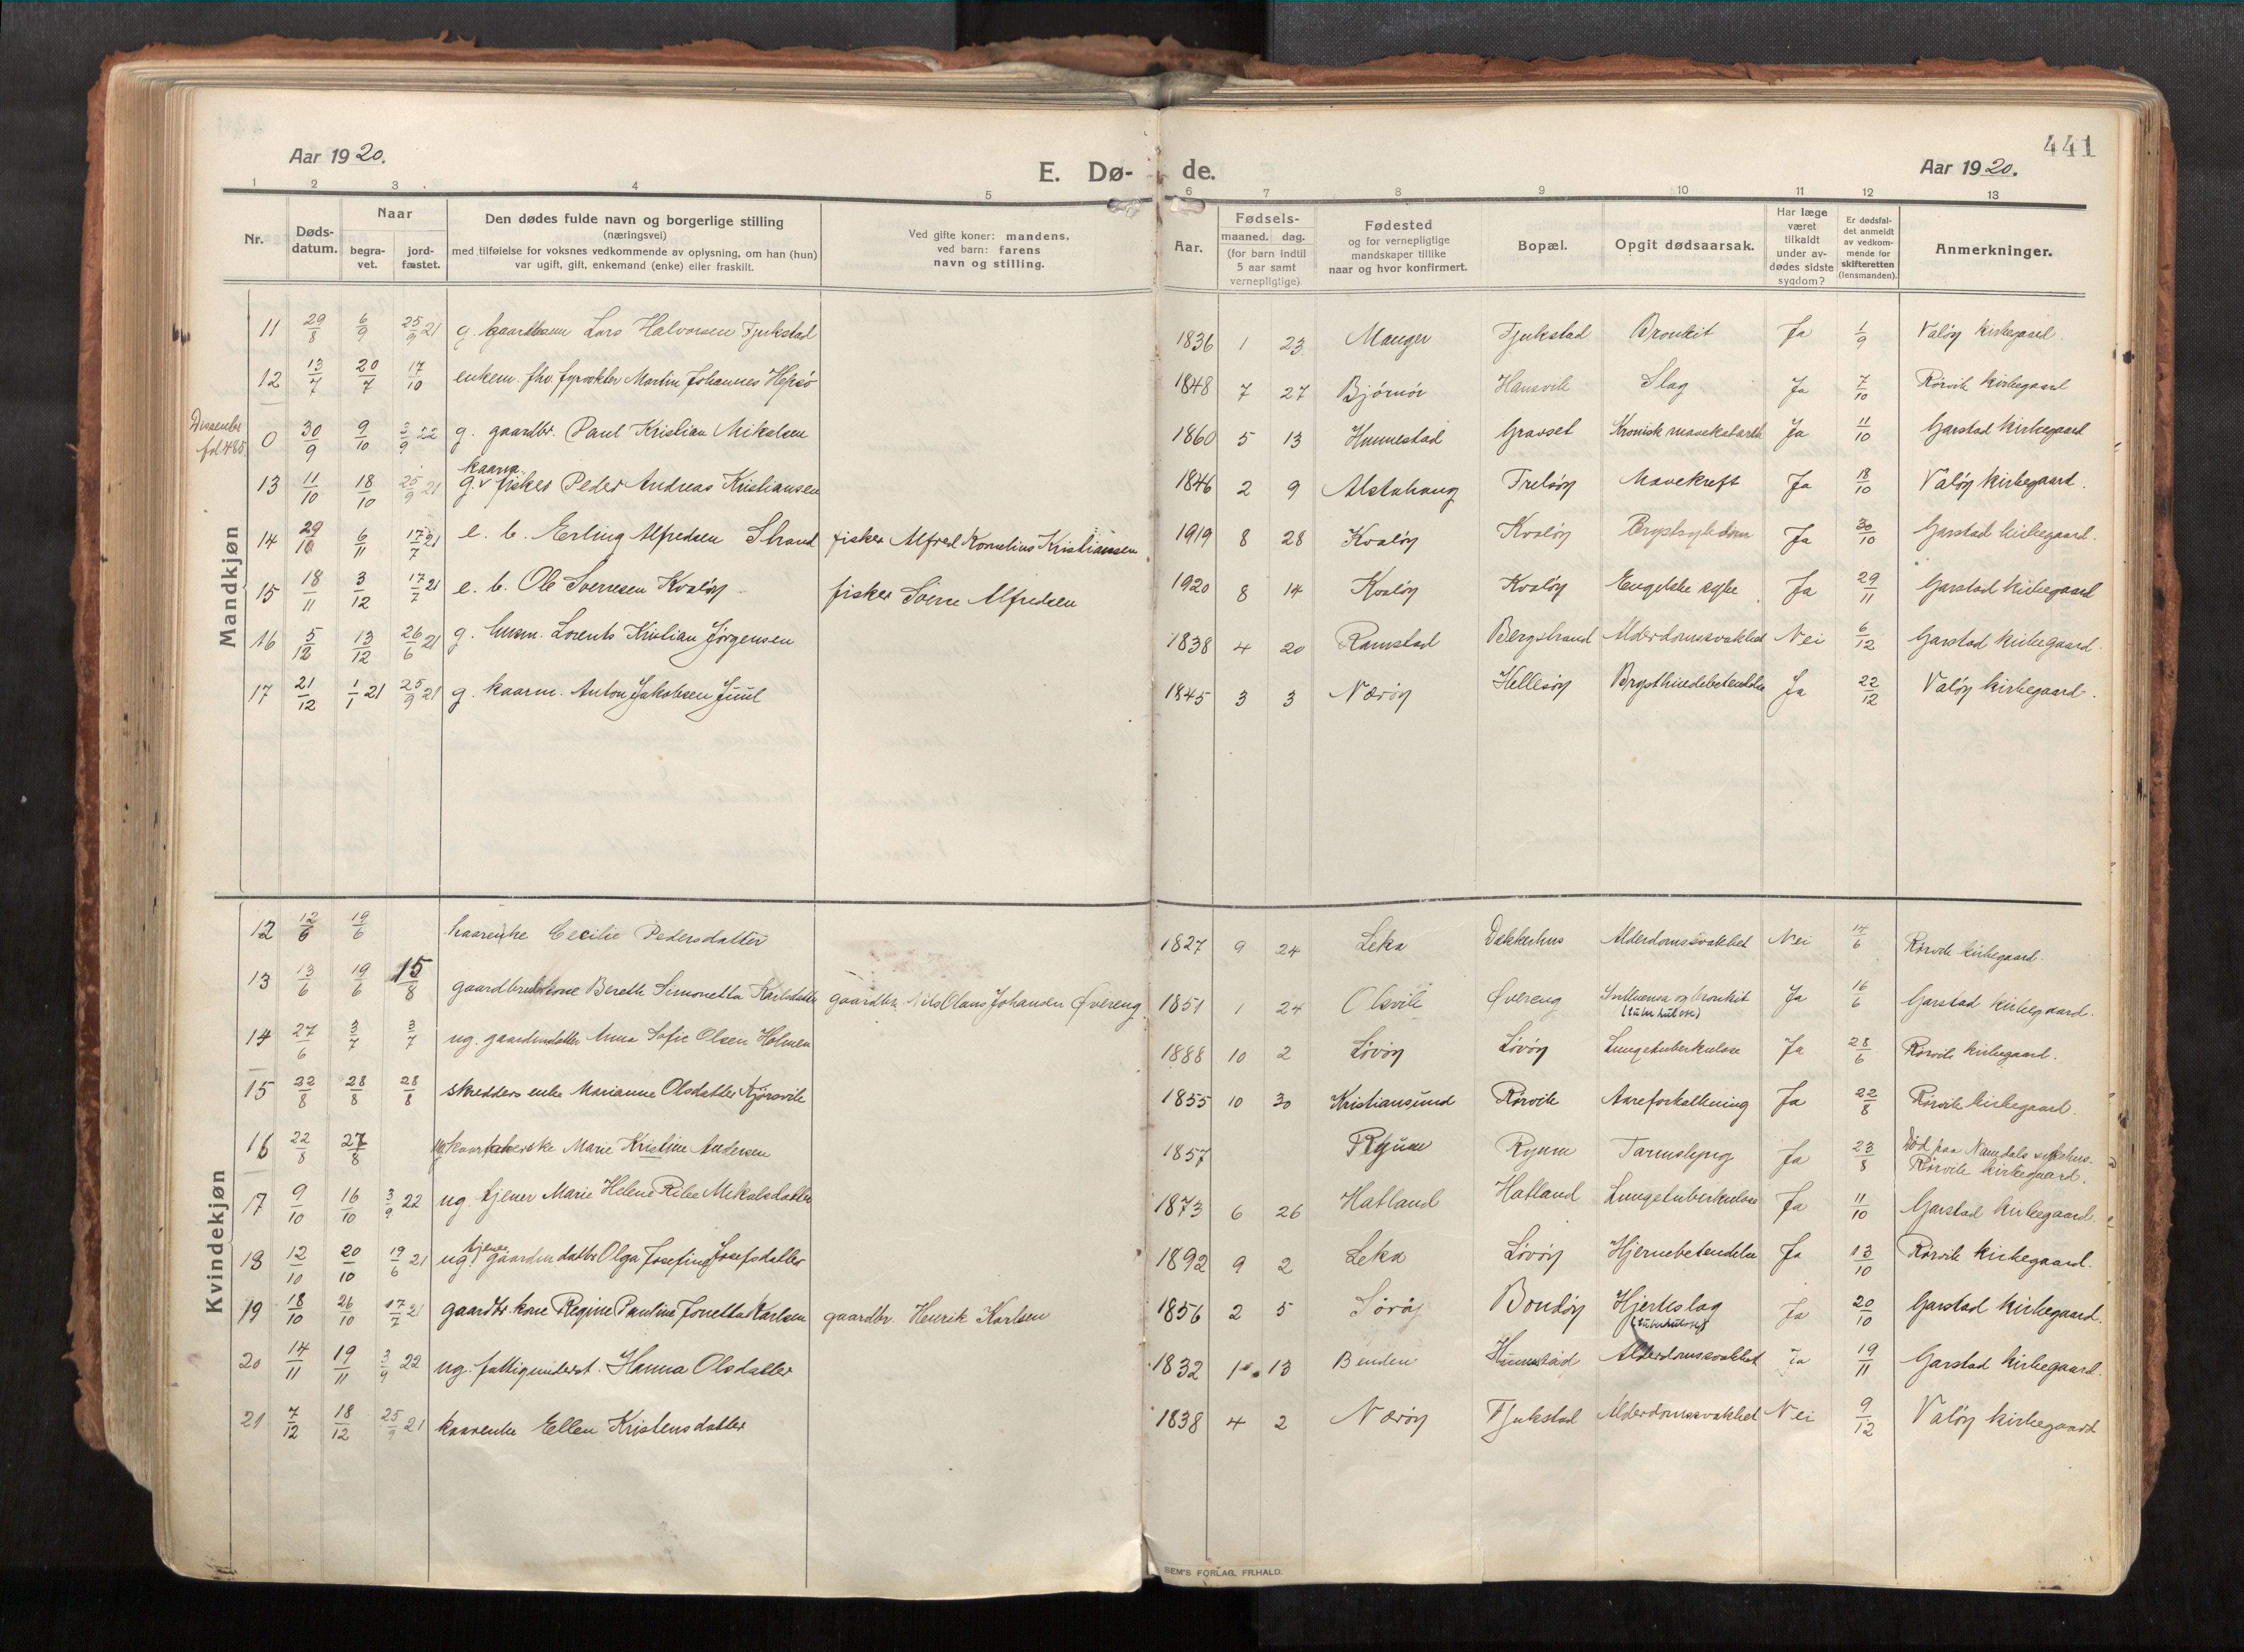 441
Aar 1920.
E. Dø- de.
Aar 1920.
1 2 3 4 5 6 7 8 9 10 11 12 13
Nr.
Døds-
datum.
Naar
begra-
vet.
jord-
fæstet.
Den dødes fulde navn og borgerlige stilling
(næringsvei)
med tilføielse for voksnes vedkommende av oplysning, om han (hun)
var ugift, gift, enkemand (enke) eller fraskilt.
Ved gifte koner: mandens,
ved barn: farens
navn og stilling.
Aar.
Fødsels-
maaned. dag.
(for barn indtil
5 aar samt
vernepligtige)
Fødested
og for vernepligtige
mandskaper tillike
naar og hvor konfirmert.
Bopæl.
Opgit dødsaarsak.
Har læge
været
tilkaldt
under av-
dødes sidste
sygdom?
Er dødsfal-
det anmeldt
av vedkom-
mende for
skifteretten
(lensmanden).
Anmerkninger.
Mandkjøn
11 29/8 6/9 25/9 21 g. Lars Halvorsen Fjukstad 1836 1 23 Manger Fjukstad Bronkit Ja 1/9 Valøy kirkegaard.
12 13/7 20/7 17/10 enkem. fhv. fyrvokter Martin Johannes Hepsø 1848 7 27 Bjørnør Hansvik Slag Ja 7/10 Rørvik kirkegaard
Dissenter
fol. 485
0 30/9 9/10 3/9 22 g. gaardbr. Paul Kristian Mikalsen 1860 5 13 Hunnestad Gravset Kronisk mavekatarrh Ja 11/10 Garstad kirkegaard
13 11/10 18/10 25/9 21 g. kaarm. fisker Peder Andreas Kristiansen 1846 2 9 Alstahaug Frelsøy Mavekreft Ja 18/10 Valøy kirkegaard.
14 29/10 6/11 17/7 21 e. b. Erling Alfredsen Strand fisker Alfred Kornelius Kristiansen 1919 8 28 Kvaløy Kvaløy Brystsykdom Ja 30/10 Garstad kirkegaard.
15 18/11 3/12 17/7 21 e. b. Ole Sverresen Kvaløy fisker Sverre Alfredsen 1920 8 14 Kvaløy Kvaløy Engelske syke Ja 29/11 Garstad kirkegaard
16 5/12 13/12 26/6 21 g. husm. Lorents Kristian Jørgensen 1838 4 20 Ramstad Bergstrand Alderdomssvakhet Nei 6/12 Garstad kirkegaard.
17 21/12 1/1 21 25/9 21 g. kaarm. Anton Jakobsen Juul 1845 3 3 Nærøy Hellesøy Brysthindebetendelse Ja 22/12 Valøy kirkegaard.
Kvindekjøn
12 12/6 19/6 kaarenke Cecilie Pedersdatter 1827 9 24 Leka Dekkerhus Alderdomssvakhet Nei 14/6 Rørvik kirkegaard.
13 13/6 19/6 15/8 gaardbrukerkone Bereth Simonetta Karlsdatter gaardbr. Nils Olaus Johansen Øvereng 1851 1 24 Olsvik Øvereng Influensa og bronkit Ja 16/6 Garstad kirkegaard.
(tuberkulose)
14 27/6 3/7 3/7 ug. gaardmdatter Anna Sofie Olsen Holmen 1888 10 2 Løvøy Løvøy Lungetuberkulose Ja 28/6 Rørvik kirkegaard.
15 22/8 28/8 28/8 skredders enke Marianne Olsdatter Kjørsvik 1855 10 30 Kristiansund Rørvik Aareforkalkning Ja 22/8 Rørvik kirkegaard.
16 22/8 27/8 Marie Kristine Andersen 1857 Ryum Ryum Tarmslyng Ja 23/8 Død paa Namdals sykehus.
Rørvik kirkegaard.
17 9/10 16/10 3/9 22 ug. tjener Marie Helene Ribe Mikalsdatter 1873 6 26 Hatland Hatland Lungetuberkulose Ja 11/10 Garstad kirkegaard.
18 12/10 20/10 19/6 21 ug. tjener gaardmdatter Olga Josefine Josefsdatter 1892 9 2 Leka Løvøy Hjernebetendelse Ja 13/10 Rørvik kirkegaard.
19 18/10 26/10 17/7 21 gaardbr. kone Regine Pauline Jonetta Karlsen gaardbr. Henrik Karlsen 1856 2 5 Sørøy Bondøy Hjerteslag Ja 20/10 Garstad kirkegaard.
(tuberkulose)
20 14/11 19/11 3/9 22 ug. fattigunderst. Hanna Olsdatter 1832 1 13 Binden Hunnestad Alderdomssvakhet Ja 19/11 Garstad kirkegaard.
21 7/12 18/12 25/9 21 kaarenke Ellen Kristensdatter 1838 4 2 Nærøy Fjukstad Alderdomssvakhet Nei 9/12 Valøy kirkegaard
SEM'S FORLAG, FR.HALD.